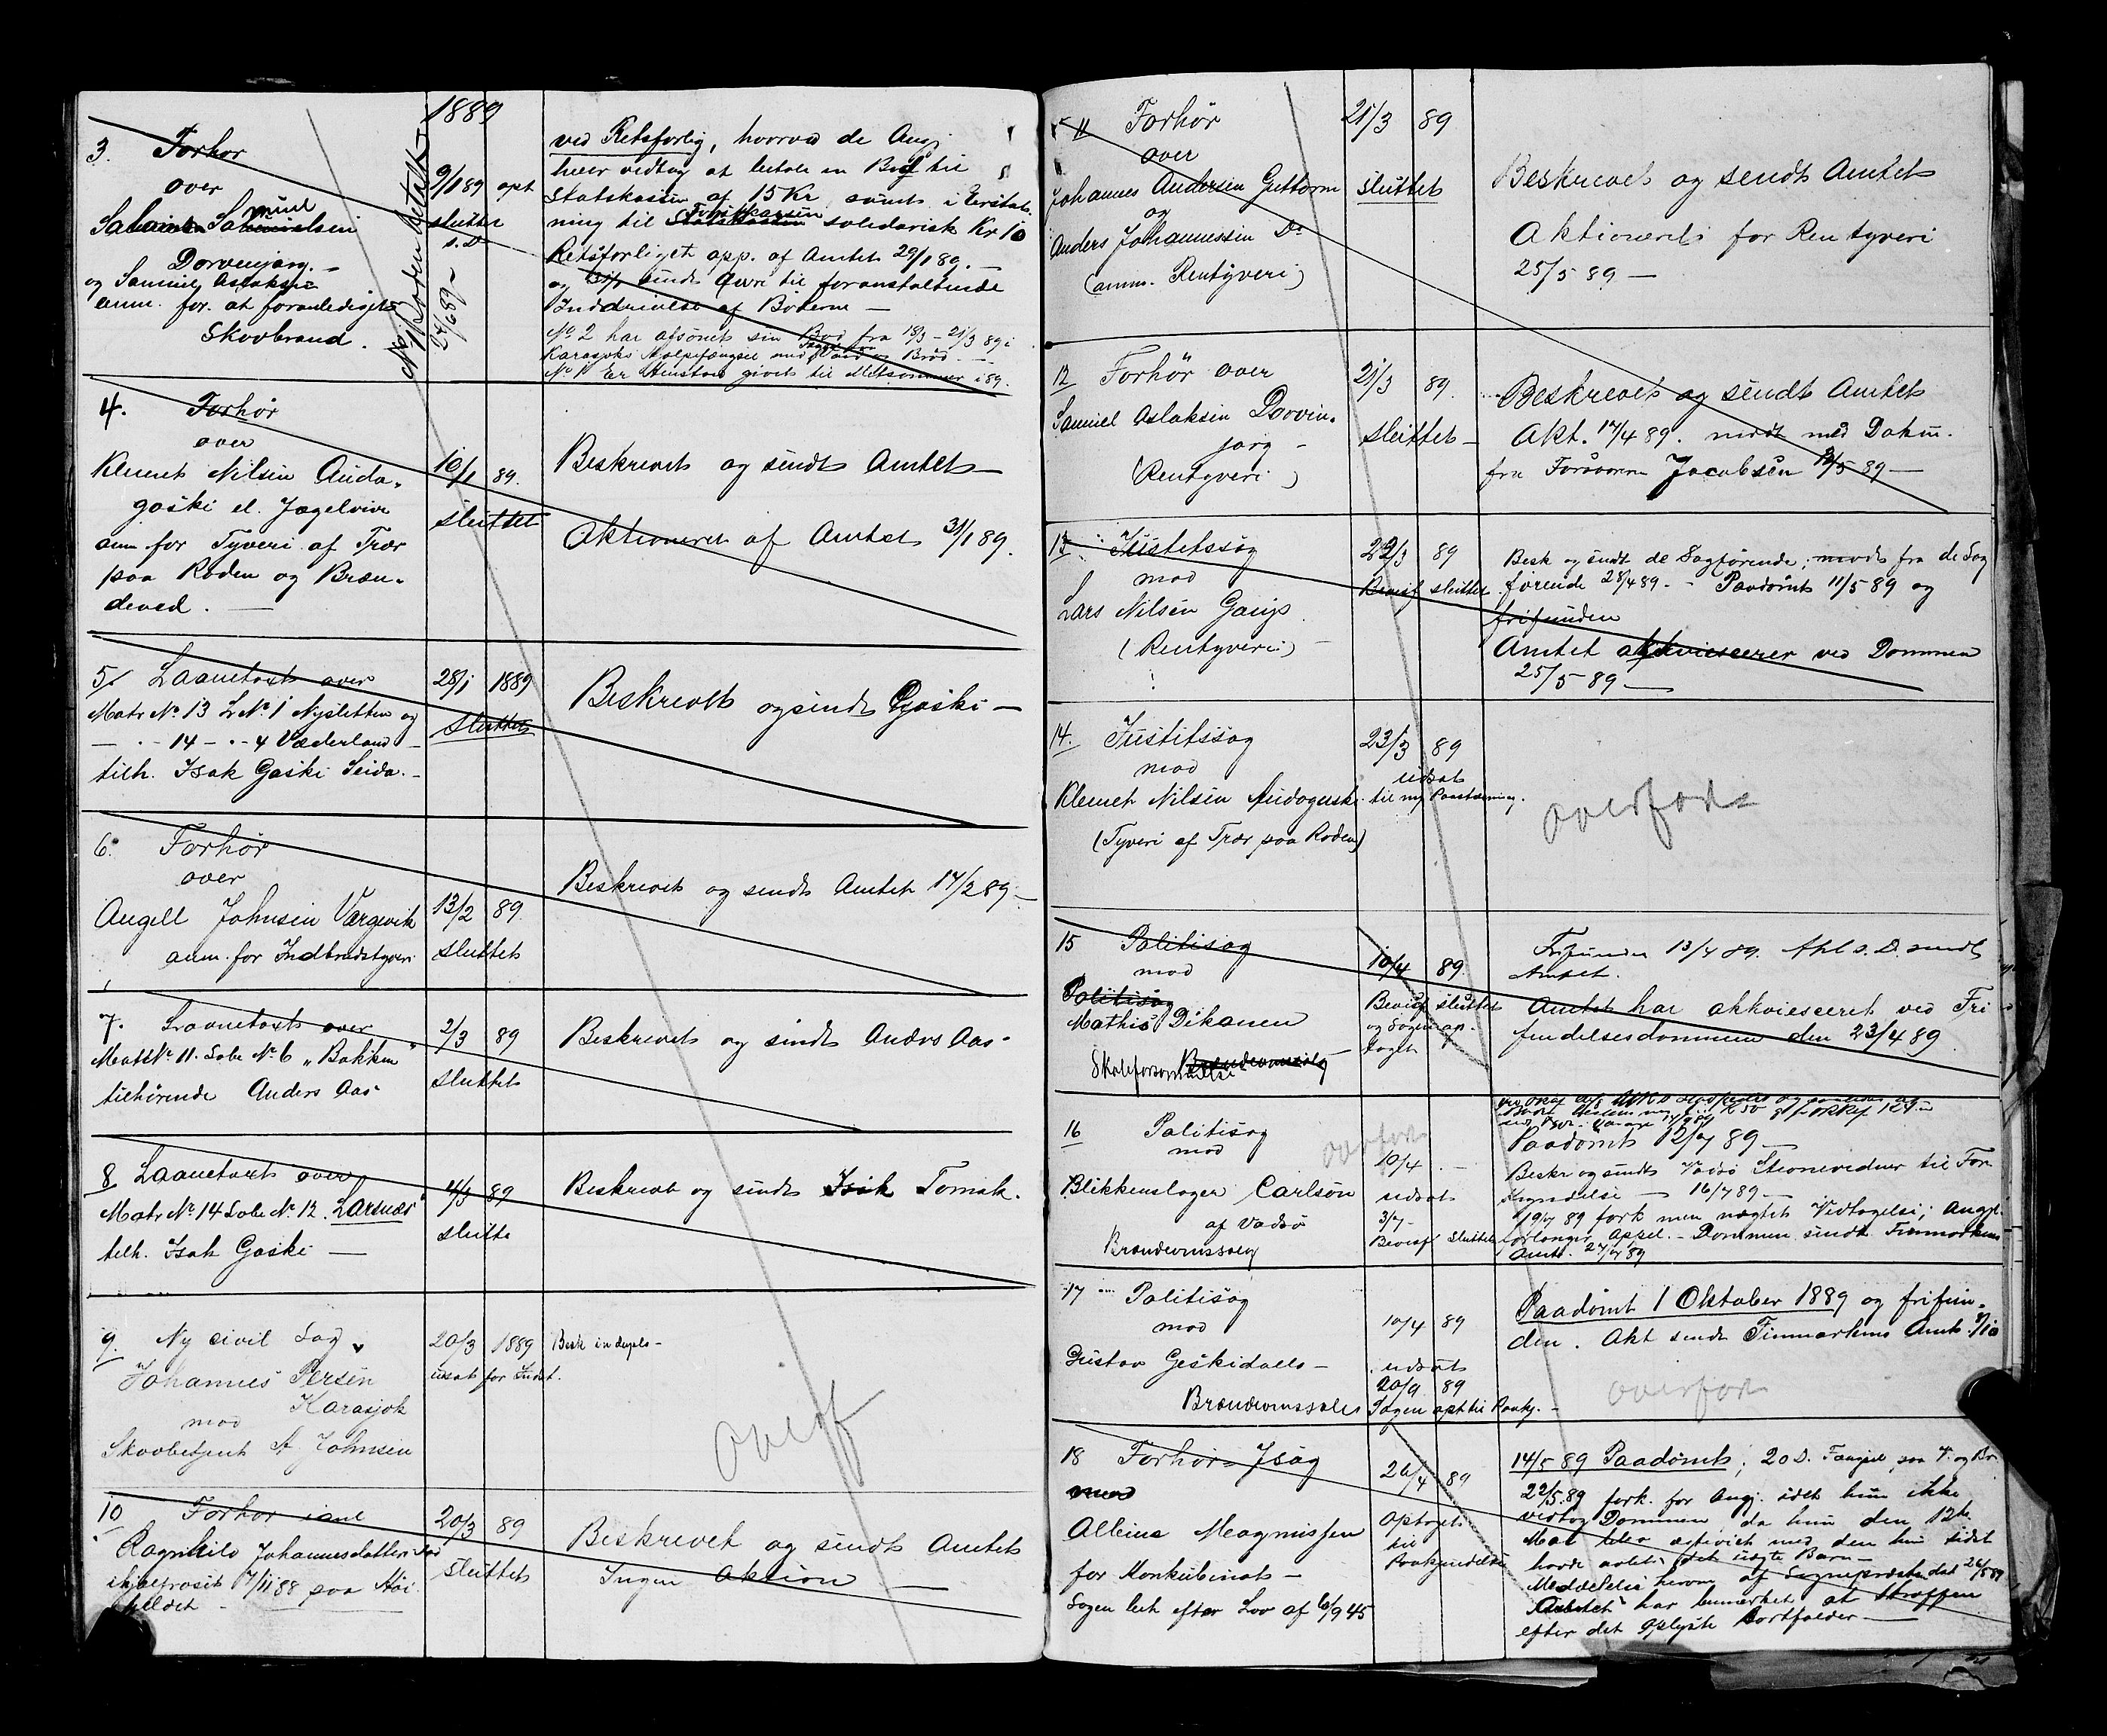 1889
3. Forhør
over
Samuel
Dorvenjarg. —
og Samuel Aslaksen
anm. for at foranlediget
Skovbrand.
9/1 89 opt
sluttet
s. D
Boden betalt
24/6 89 —
ved Retsforlig, hvorved de Angj
hver vedtog at betale en Bod til
Statskassen af 15 Kr samt i Erstat-
ning til solidarisk Kr 10
Retsforliget app. af Amtet 29/1 89. —
og sendt til foranstaltende
Inddrivelse af Bøderne —
No 2 har afsonet sin Bod fra 18/3 – 21/3 89 i
Karasjoks Hjelpefængsel med Vand og Brød. —
No 1 Er Henstand givet til Midtsommer i 89.
4. Forhør
over
Klemet Nilsen Auda-
goski el. Jagelvive
anm for Tyveri af Trær
paa Roden og Bræn-
deved. —
10/1 89.
sluttet
Beskrevet og sendt Amtet —
Aktioneret af Amtet 31/1 89.
5/ Laanetaxt over
Matr No 13 L No 1 Nysletten og
— . — 14 — . — 4 Væderland —
tilh. Isak Gaski Seida. —
28/1 1889
Sluttet
Beskrevet og sendt Gaski —
6. Forhør
over
Angell Johnsen Vargevik
anm. for Indbrudstyveri
13/2 89.
sluttet
Beskrevet og sendt Amtet 14/2 89 —
7. Laanetaxt over
Matr No 11. Løbe No 6 „Bakken"
tilhørende Anders Aas
2/3 89
sluttet
Beskrevet og sendt Anders Aas
8 Laanetaxt over
Matr No 14 Løbe No 12. Larsnæs"
tilh. Isak Gaski —
4/3 89
slutte
Beskrevet og sendt Isak Tornsk.
9. Ny civil Sag
Johannes Persen
Karasjok
mod
Skovbetjent A Johnsen
20/3 1889
usat for Indst.
Besk in duplo —
overf
10 Forhør
Ragnhild Johannesdatter
ihjelfrosset 7/11 88 paa Høi
fjeldet —
20/3 89
sluttet
Beskrevet og sendt Amtet
Ingen Aktion —
11 Forhør
over
Johannes Andersen Guttorm
og
Anders Johannessen Do
(anm. Rentyveri)
21/3 89
sluttet
Beskrevet og sendt Amtet
Aktioneret for Rentyveri
25/5 89 —
12 Forhør over
Samuel Aslaksen Dorvin-
jarg —
(Rentyveri)
21/3 89.
sluttet —
Beskrevet og sendt Amtet
Akt. 17/4 89. modt med Dokum.
fra Forsvarer Jacobsen 12/5 89 —
13 Justitssag
mod
Lars Nilsen Gaup
(Rentyveri) —
22/3 89
Bevisf sluttet
Besk og sendt de Sagførende; modt fra de Sag
førende 28/4 89. – Paadømt 11/5 89 og
frifunden
Amtet akkviescerer ved Dommen
25/5 89 —
14. Justitssag
mod
Klemet Nilsen Audagoski
(Tyveri af Trær paa Roden)
23/3 89
udsat
til ny Paastævning.
overført
15 Politisag
mod
Politisag
Mathis Dikanen
Skoleforsømmelse
Brændevinssalg
10/4 89.
Bevisf sluttet
og Sagen op-
taget
Frifunden 13/4 89. Akt s. D. sendt
Amtet.
Amtet har akkviesceret ved Fri
findelsesdommen den 23/4 89.
16 Politisag
mod
Blikkenslager Carlson
af Vadsø
Brændevinssalg
10/4 —
udsat
3/7 —
Bevisf sluttet
overført
Paadømt 12/7 89 —
Beskr og sendt Vadsø Skionevidner til For
kyndelse — 16/7 89 —
19/7 89 fork men nægtet Vidtagelse; Angj.
forlanger Appel. – Dommen sendt Finmarkens
Amt. 27/7 89
17 Politisag
mod
Gustav Geskidalo —
Brændevinssalg
10/4 89
udsat
20/9 89
Sagen opt til Paakj. —
Paadømt 1 Oktober 1889 og frifun-
den. Akt sendt Finmarkens Amt. 9/10
overført
18 Forhørs Isag
mod
Albine Magnussen
for Konkubinat —
Sagen beh efter Lov af 6/9 45
26/4 89
Optaget
til
Paakjendelse
14/5 89 Paadømt; 20 D. Fængsel paa V. og Br.
22/5 89 fork. for Angj. idet hun ikke
vedtog Dommen da hun den 12te
Mai blev ægteviet med den hun sidst
havde avlet det uægte Barn —
Meddelelse herom af Sognepræsten dat 24/5 89
Amtet har bemærket at Straffen
efter det Oplyste bortfalder —